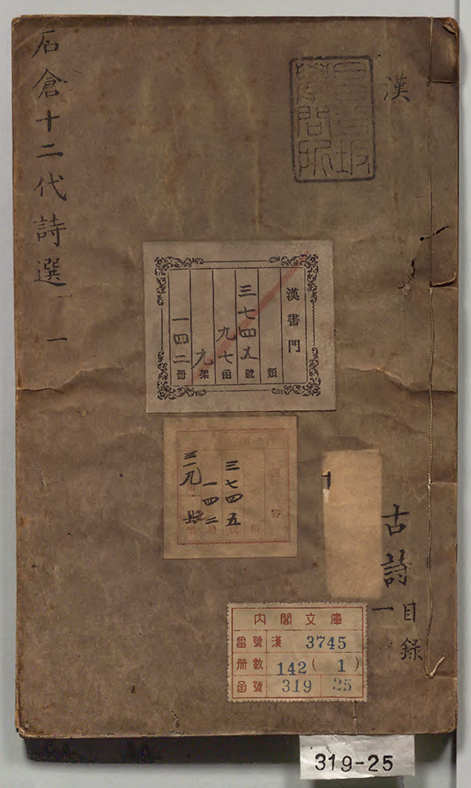 漢
昌平坂
學問所
石倉十二代詩選 一
漢書門
類
三七四五號
九七函
九架
一四二冊
三七四五
一四二
古詩
一 目錄
內閣文庫
番號 漢 3745
冊數 142 (1)
函號 319 25
319-25